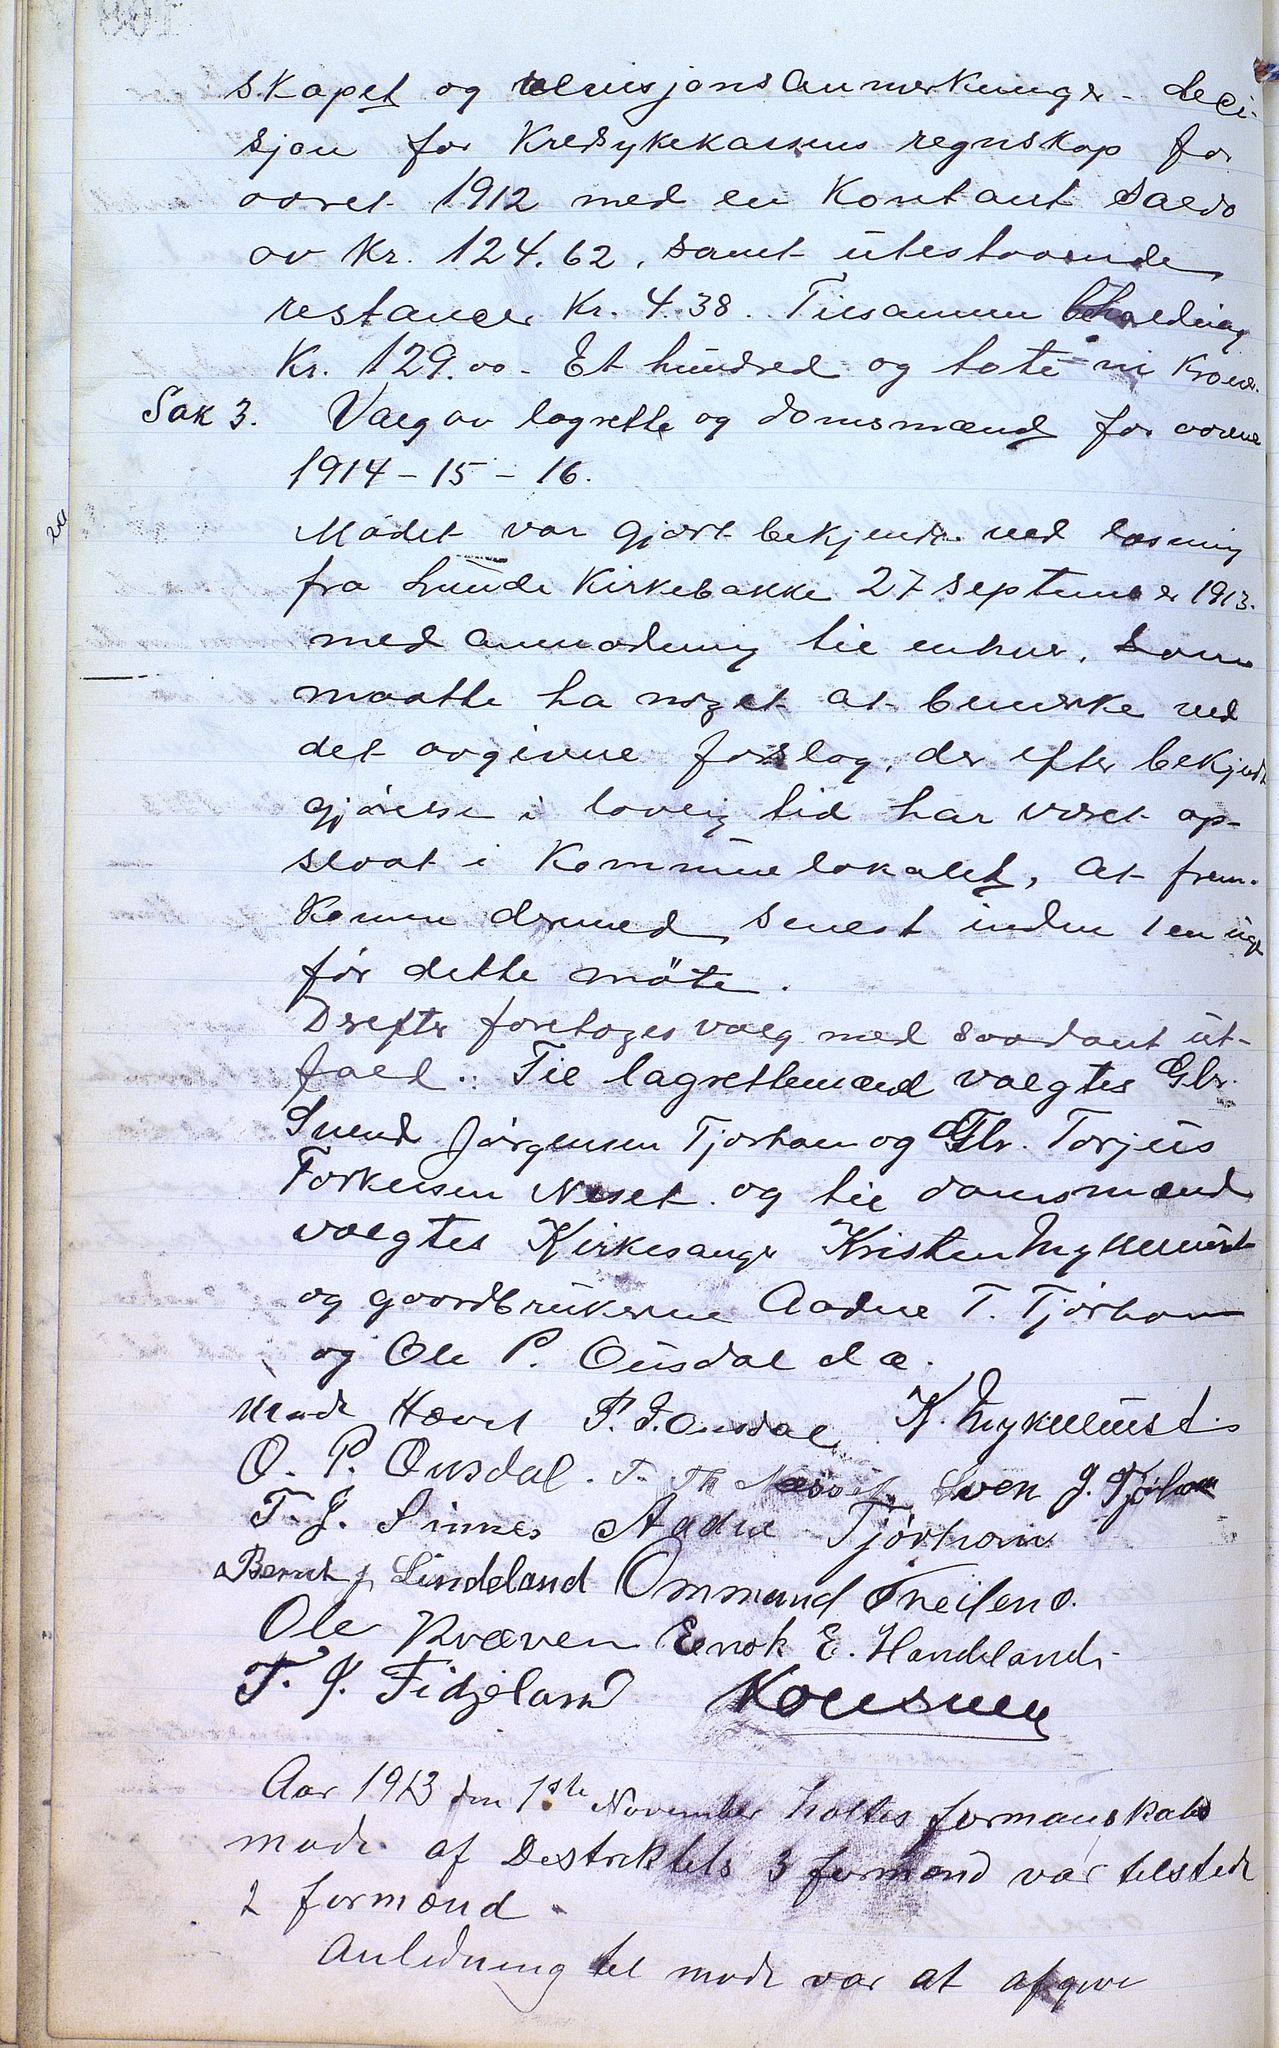 skapet og revisjonsanmerkninger - deci-
sjon for Kredsykekassens regnskap for
aaret 1912 med en Kontant Saldo
av Kr. 124.62, samt utestaaende
restancer Kr. 4.38. Tilsammen beholdning
Kr. 129.00 - Et hundred og toti ni Kroner.
Sak 3. Valg av lagrette og domsmænd for aarene
1914 - 15 - 16.
Mødet var gjort bekjendt ved læsning
fra Lunde Kirkebakke 27 september 1913.
med anmodning til enhver, som
maatte ha noget at bemerke ved
det avgivne forslag, der efter bekjendt
gjørelse i lovlig tid har været op-
slaat i Kommunelokalet, at frem-
komme dermed senest inden 1 en uge
før dette møte.
Derefter foretages valg med saadant ut-
fald: Til lagrettemænd valgtes Gbr.
Svend Jørgensen Tjorhom og Gbr. Torjus
Torkelsen Neset og til domsmænd
valgtes Kirkesanger Kristen Myklemirst
og gaardbrukerne Aadne T. Tjørhom
og Ole P. Ousdal d æ.
Møde Hævet P. T. Ousdal K. Myklemirst
O. P. Ousdal. T. Th Næsset Sven J. Tjørhom
T. J. Sinnes Aadne Tjørhom
Bernt J Lindeland Ommund Treiland.
Ole Kvæven Enok E. Handeland
T. J. Fidjeland
Aar 1913 den 1ste November holtes formanskabs
møde af Destriktets 3 formænd var telstede
2 formænd.
Anledning tel møde var at afgive